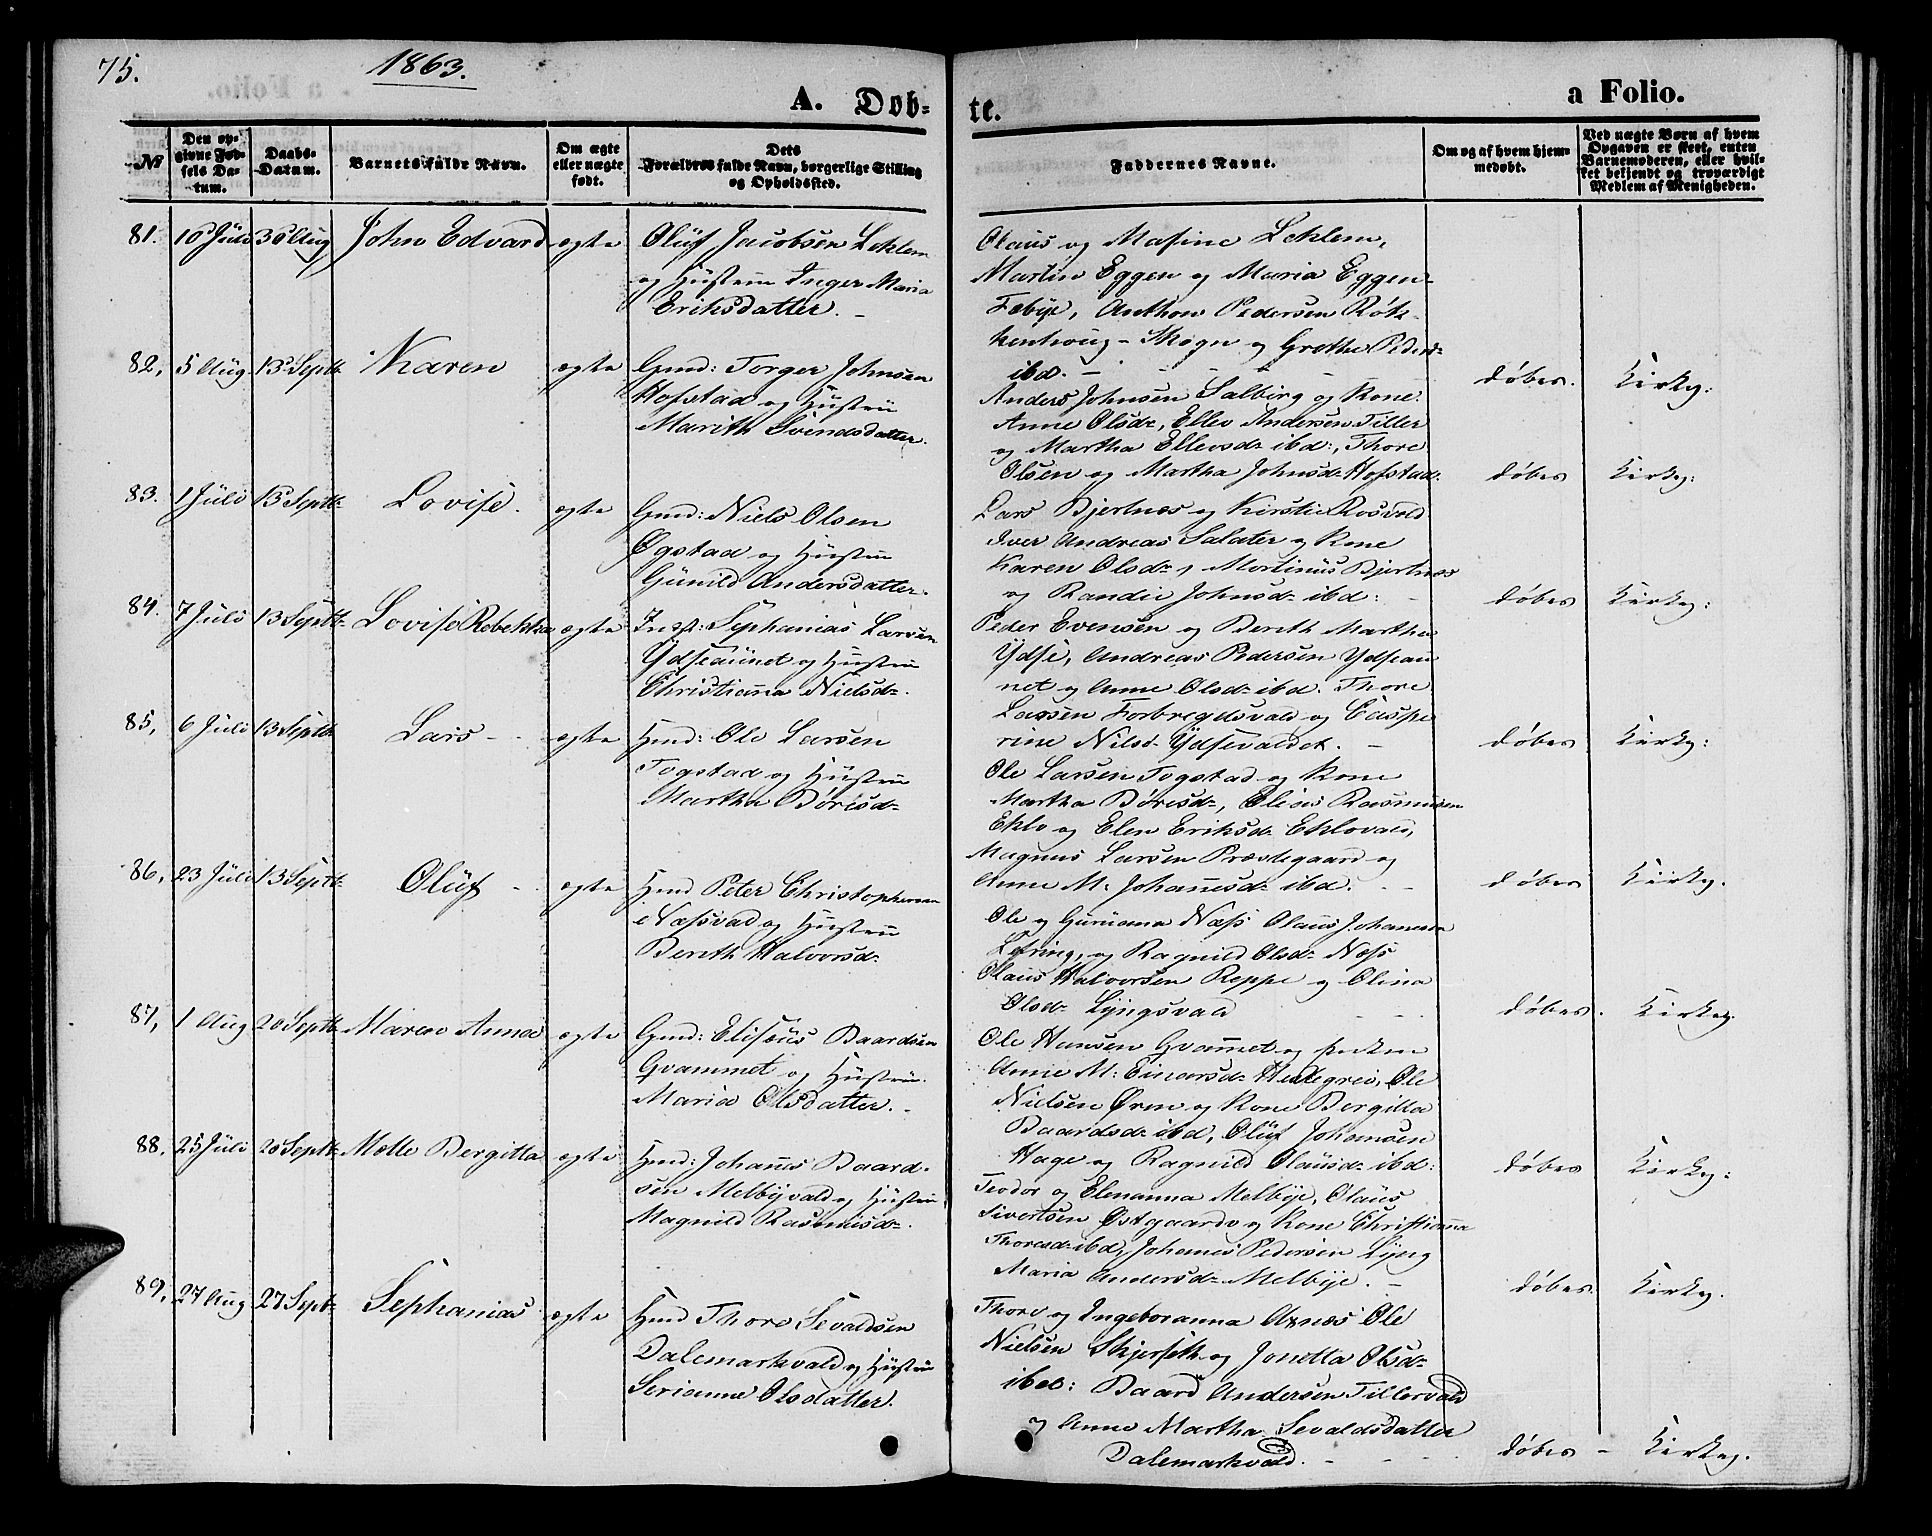 75.
1863.
A. Døb-
te.
a Folio.
№
Den op-
givne Fød-
sels Da-
tum.
Daabs-
Datum.
Barnets fulde Navn.
Om ægte
eller uægte
født.
Dets
Forældres fulde Navn, borgerlige Stilling
og Opholdssted.
Faddernes Navne.
Om og af hvem hjem-
medøbt.
Ved uægte Børn af hvem
Opgaven er skeet, enten
Barnemoderen, eller hvil-
ket bekjendt og troværdigt
Medlem af Menigheden.
81. 10 Juli 30 Aug John Edvard ægte Oluf Jacobsen Leklem
og Hustru Inger Maria
Eriksdatter. -
Olaus og Masine Leklem,
Martin Eggen og Maria Eggen
Fæbye, Anthon Pedersen
- Skogn og Grethe Pedersd
ibd. - døbes. Kirky:
82, 5 Aug 13 Septb Karen ægte Gmd: Torger Johnsen
Hofstad og Hustru
Marith Svendsdatter.
Anders Johnsen Salberg og Kone
Anne Olsd-, Ellev Andersen Tiller
og Martha Ellevsd- ibd:, Thore
Olsen og Martha Johnsd- Hofstad. døbes Kirky:
83. 1 Juli 13 Septb- Lovise. ægte Gmd: Niels Olsen
Øgstad og Hustru
Gunild Andersdatter.
Lars Bjertnæs og Kirstie Rosvold
Iver Andreas Salater og Kone
Karen Olsd-, Martinus Bjertnæs
og Randie Johnsd- ibd: - døbes Kirky:
84. 7 Juli 13 Septb- Lovise Rebekka ægte Inst: Sephanias Larsen
Ydseaunet og Hustru
Christianna Nielsd-.
Peder Evensen og Bereth Martha
Ydse, Andreas Pedersen Ydseau
net og Anne Olsd- ibd. Thore
Larsen Forbregdsvald og Caspe
rine Nilsd- Ydsevaldet. - døbes Kirky:
85, 6 Juli 13 Septb Lars - - ægte Hmd: Ole Larsen
Togstad og Hustru
Martha Børisd-
Ole Larsen Togstad og Kone
Martha Børisd-, Elias Rasmusen
Eklo og Elen Eriksd- Eklovald,
Magnus Larsen Præstegaard og
Anne M. Johanesd- ibd. - - døbes Kirky.
86, 23 Juli 13 Septb- Oluf - ægte Hmd Peter Christophersen
Næssvald og Hustru
Bereth Halvorsd-
Ole og Guruanna Næss Olaus Johannesen
Lefring, og Ragnild Olsd- Næss
Olaus Halvorsen Reppe og Olina
Olsd- Lyngsvald - - - døbes. Kirky.
87, 1 Aug 20 Septb Maren Anna ægte Gmd: Elisæus Baardsen
Qvammet og Hustru.
Maria Olsdatter. -
Ole Hansen Qvammet og
Anne M: Einarsd- Hellegrei, Ole
Nielsen Øren og Kone Bergitta
Baardsd- ibd, Oluf Johansen
Hage og Ragnild Olausd- ibd: døbes Kirky:
88. 25 Juli 20 Septb Mette Bergitta ægte Hmd: Johanes Baard-
sen Melbyvald og Hustru,
Magnild Rasmusd-.
Teodor og Elenanna Melbye, Olaus
Sivertsen Østgaard og Kone Christianna
Thoresd- ibd, Johanes Pedersen Lyng
Maria Andersd- Melbye. - døbes. Kirky.
89, 27 Aug 27 Septb- Sephanias ægte Hmd Thore Sevaldsen
Dalemarkvald og Hustru
Serianne Olsdatter.
Thore og Ingeboranna Axnæs Ole
Nielsen Skjerseth og Jonetta Olsd-
ibd: Baard Andersen Tillervald
og Anne Martha Sevaldsdatter
Dalemarkvald. - - - døbes - Kirky.